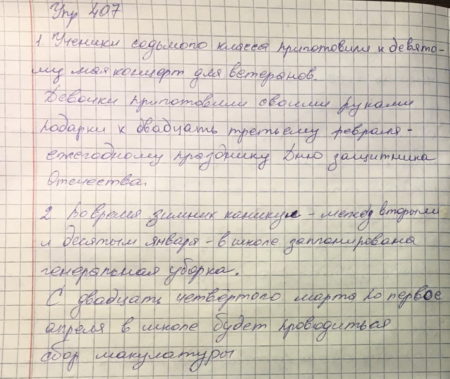 Упр 407
1 Ученики седьмого класса приготовили к девято-
му мая концерт для ветеранов.
Девочки приготовили своими руками
подарки к двадцать третьему февраля -
ежегодному празднику Дню защитника
Отечества.
2 Во время зимних каникул - между вторым
и десятым января - в школе запланирована
генеральная уборка.
С двадцать четвёртого марта по первое
апреля в школе будет проводиться
сбор макулатуры